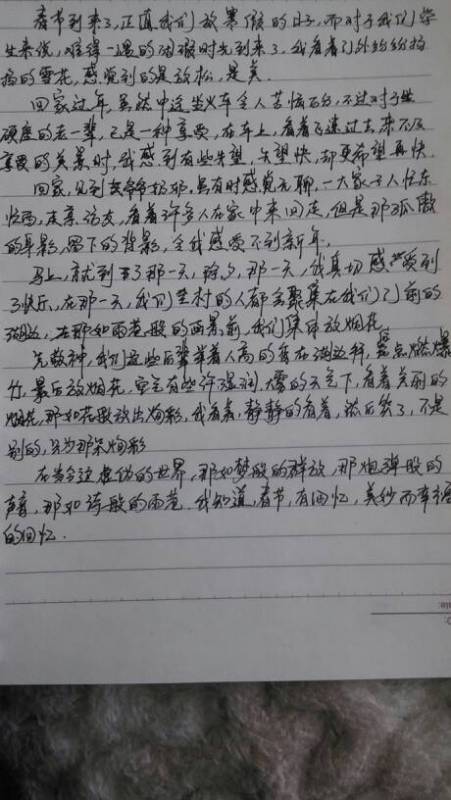 春节到来了,正值我们放寒假的日子,而对于我们学
生来说,难得一遇的闲暇时光到来了,我看着门外纷纷扬
扬的雪花,感受到的是放松,是
回家过年,虽然中途坐火车令人苦恼万分,不过对于坐
硬座的老一辈,已是一种享受,在车上,看着飞速过去,来不及
享受的美景时,我感到有些失望,失望快,却更希望再快.
回家,见到爷爷奶奶,虽有时感觉无聊,一大家子人忙东
忙西,走亲访友,看着许多人在家中来回走,但是那孤傲
的身影,留下的背影,令我感受不到新年,
马上,就到了那一天,除夕,那一天,我真切感受到
了快乐,在那一天,我们全村的人都会聚集在我们门前的
湖边,在那如雨巷般的雨景前,我们集中放烟花
先敬神,我们这些后辈举着人高的香在湖边拜,然后点燃爆
竹,最后放烟花,空气有些许湿润,飘雪的天气下,看着美丽的
烟花,那如花般放出绚彩,我看着,静静的看着,然后笑了,不是
别的,只为那朵绚彩
在如今这虚伪的世界,那如梦般的鲜放,那炮弹般的
声音,那如诗般的雨巷,我知道,春节,有回忆,美妙而幸福
的回忆.